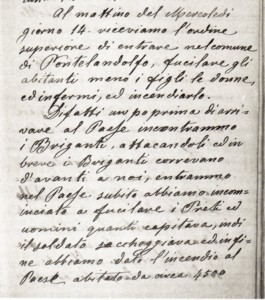 Al mattino del Mercoledì
giorno 14. riceviamo l'ordine
superiore di entrare nel comune
di Pontelandolfo, fucilare gli
abitanti meno i figli le donne
ed infermi, ed incendiarlo.
Difatti un po prima di arri-
vare al Paese incontrammo
i Briganti, attacandoli ed in
breve i Briganti correvano
d'avanti a noi, entrammo
nel Paese subito abbiamo incom-
inciato a fucilare i Preti ed
uomini quanti capitava, indi
il soldato sacchegiava ed infi-
ne abbiamo dato l'incendio al
Paese abitato da circa 4500